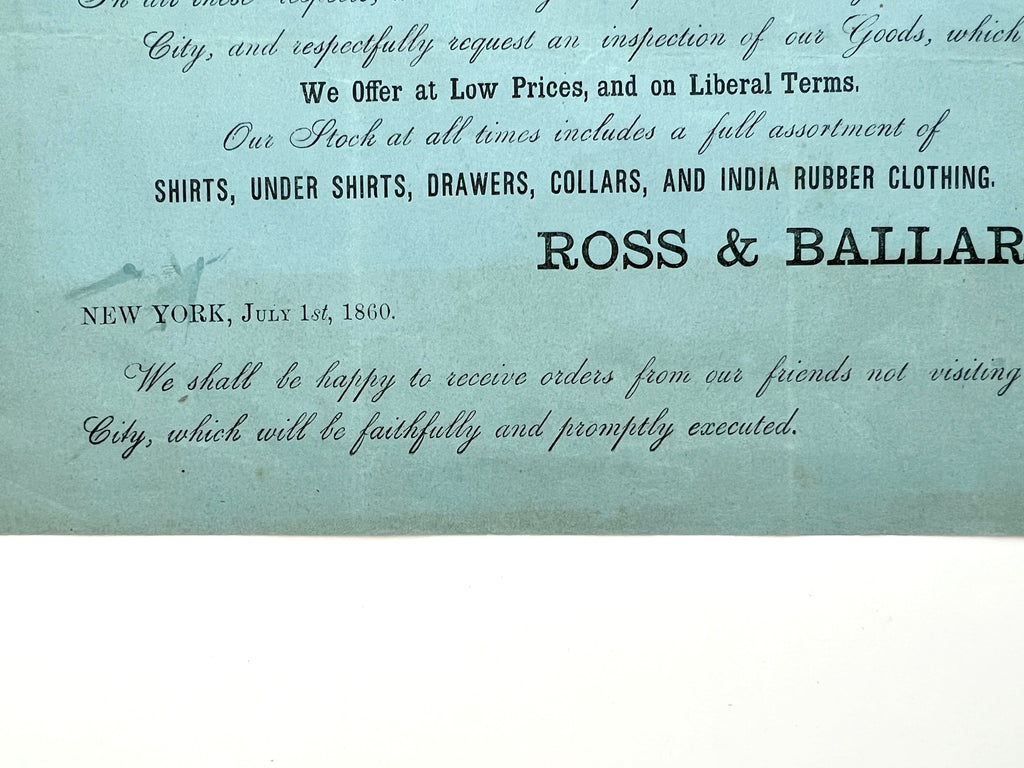 In all these
City, and respectfully request an inspection of our Goods, which
We Offer at Low Prices, and on Liberal Terms.
Our Stock at all times includes a full assortment of
SHIRTS, UNDER SHIRTS, DRAWERS, COLLARS, AND INDIA RUBBER CLOTHING.
ROSS & BALLAR
NEW YORK, July 1st, 1860.
We shall be happy to receive orders from our friends not visiting
City, which will be faithfully and promptly executed.